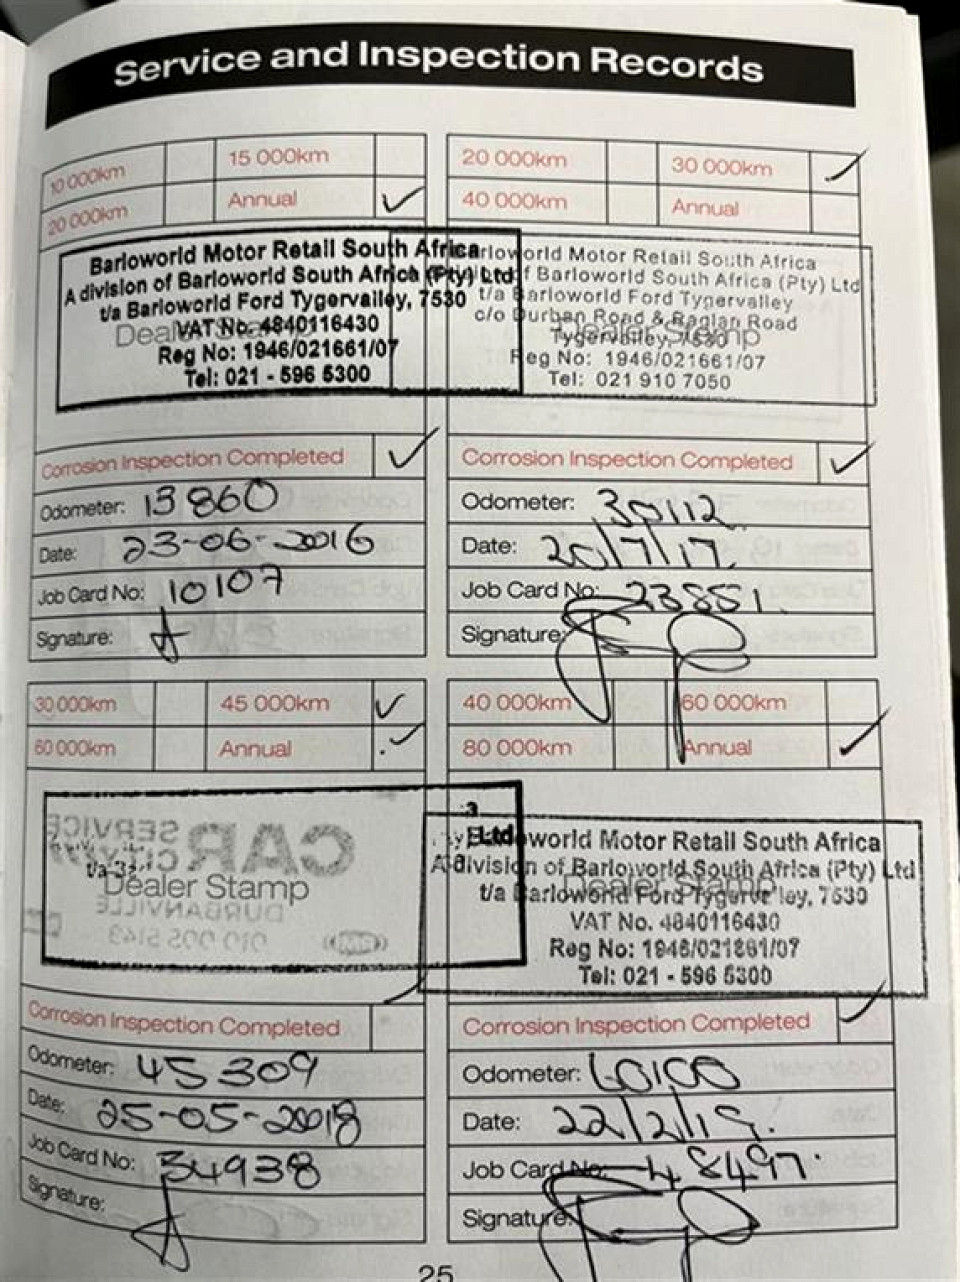 Service and Inspection Records
10 000km 15 000km
20 000km Annual ✓
Barloworld Motor Retail South Africa
A division of Barloworld South Africa (Pty) Ltd
t/a Barloworld Ford Tygervalley, 7530
Dealer Stamp
VAT No. 4840116430
Reg No: 1946/021661/07
Tel: 021 - 596 5300
Corrosion Inspection Completed ✓
Odometer: 13860
Date: 23-06-2016
Job Card No: 10107
Signature:
20 000km 30 000km ✓
40 000km Annual
Barloworld Motor Retail South Africa
of Barloworld South Africa (Pty) Ltd
t/a Barloworld Ford Tygervalley
c/o Durban Road & Raglan Road
Dealer Stamp
Tygervalley, 7530
Reg No: 1946/021661/07
Tel: 021 910 7050
Corrosion Inspection Completed ✓
Odometer: 30112
Date: 20/7/17
Job Card No: 23551
Signature:
30 000km 45 000km ✓
60 000km Annual ✓
Ltd
t/a
Dealer Stamp
CAR SERVICE
CITY
DURBANVILLE
010 005 5143
Corrosion Inspection Completed ✓
Odometer: 45309
Date: 25-05-2018
Job Card No: 34938
Signature:
40 000km 60 000km
80 000km Annual ✓
Barloworld Motor Retail South Africa
A division of Barloworld South Africa (Pty) Ltd
t/a Barloworld Ford Tygervalley, 7530
Dealer Stamp
VAT No. 4840116430
Reg No: 1946/021661/07
Tel: 021 - 596 5300
Corrosion Inspection Completed ✓
Odometer: 60100
Date: 22/2/19.
Job Card No: 48497.
Signature:
25